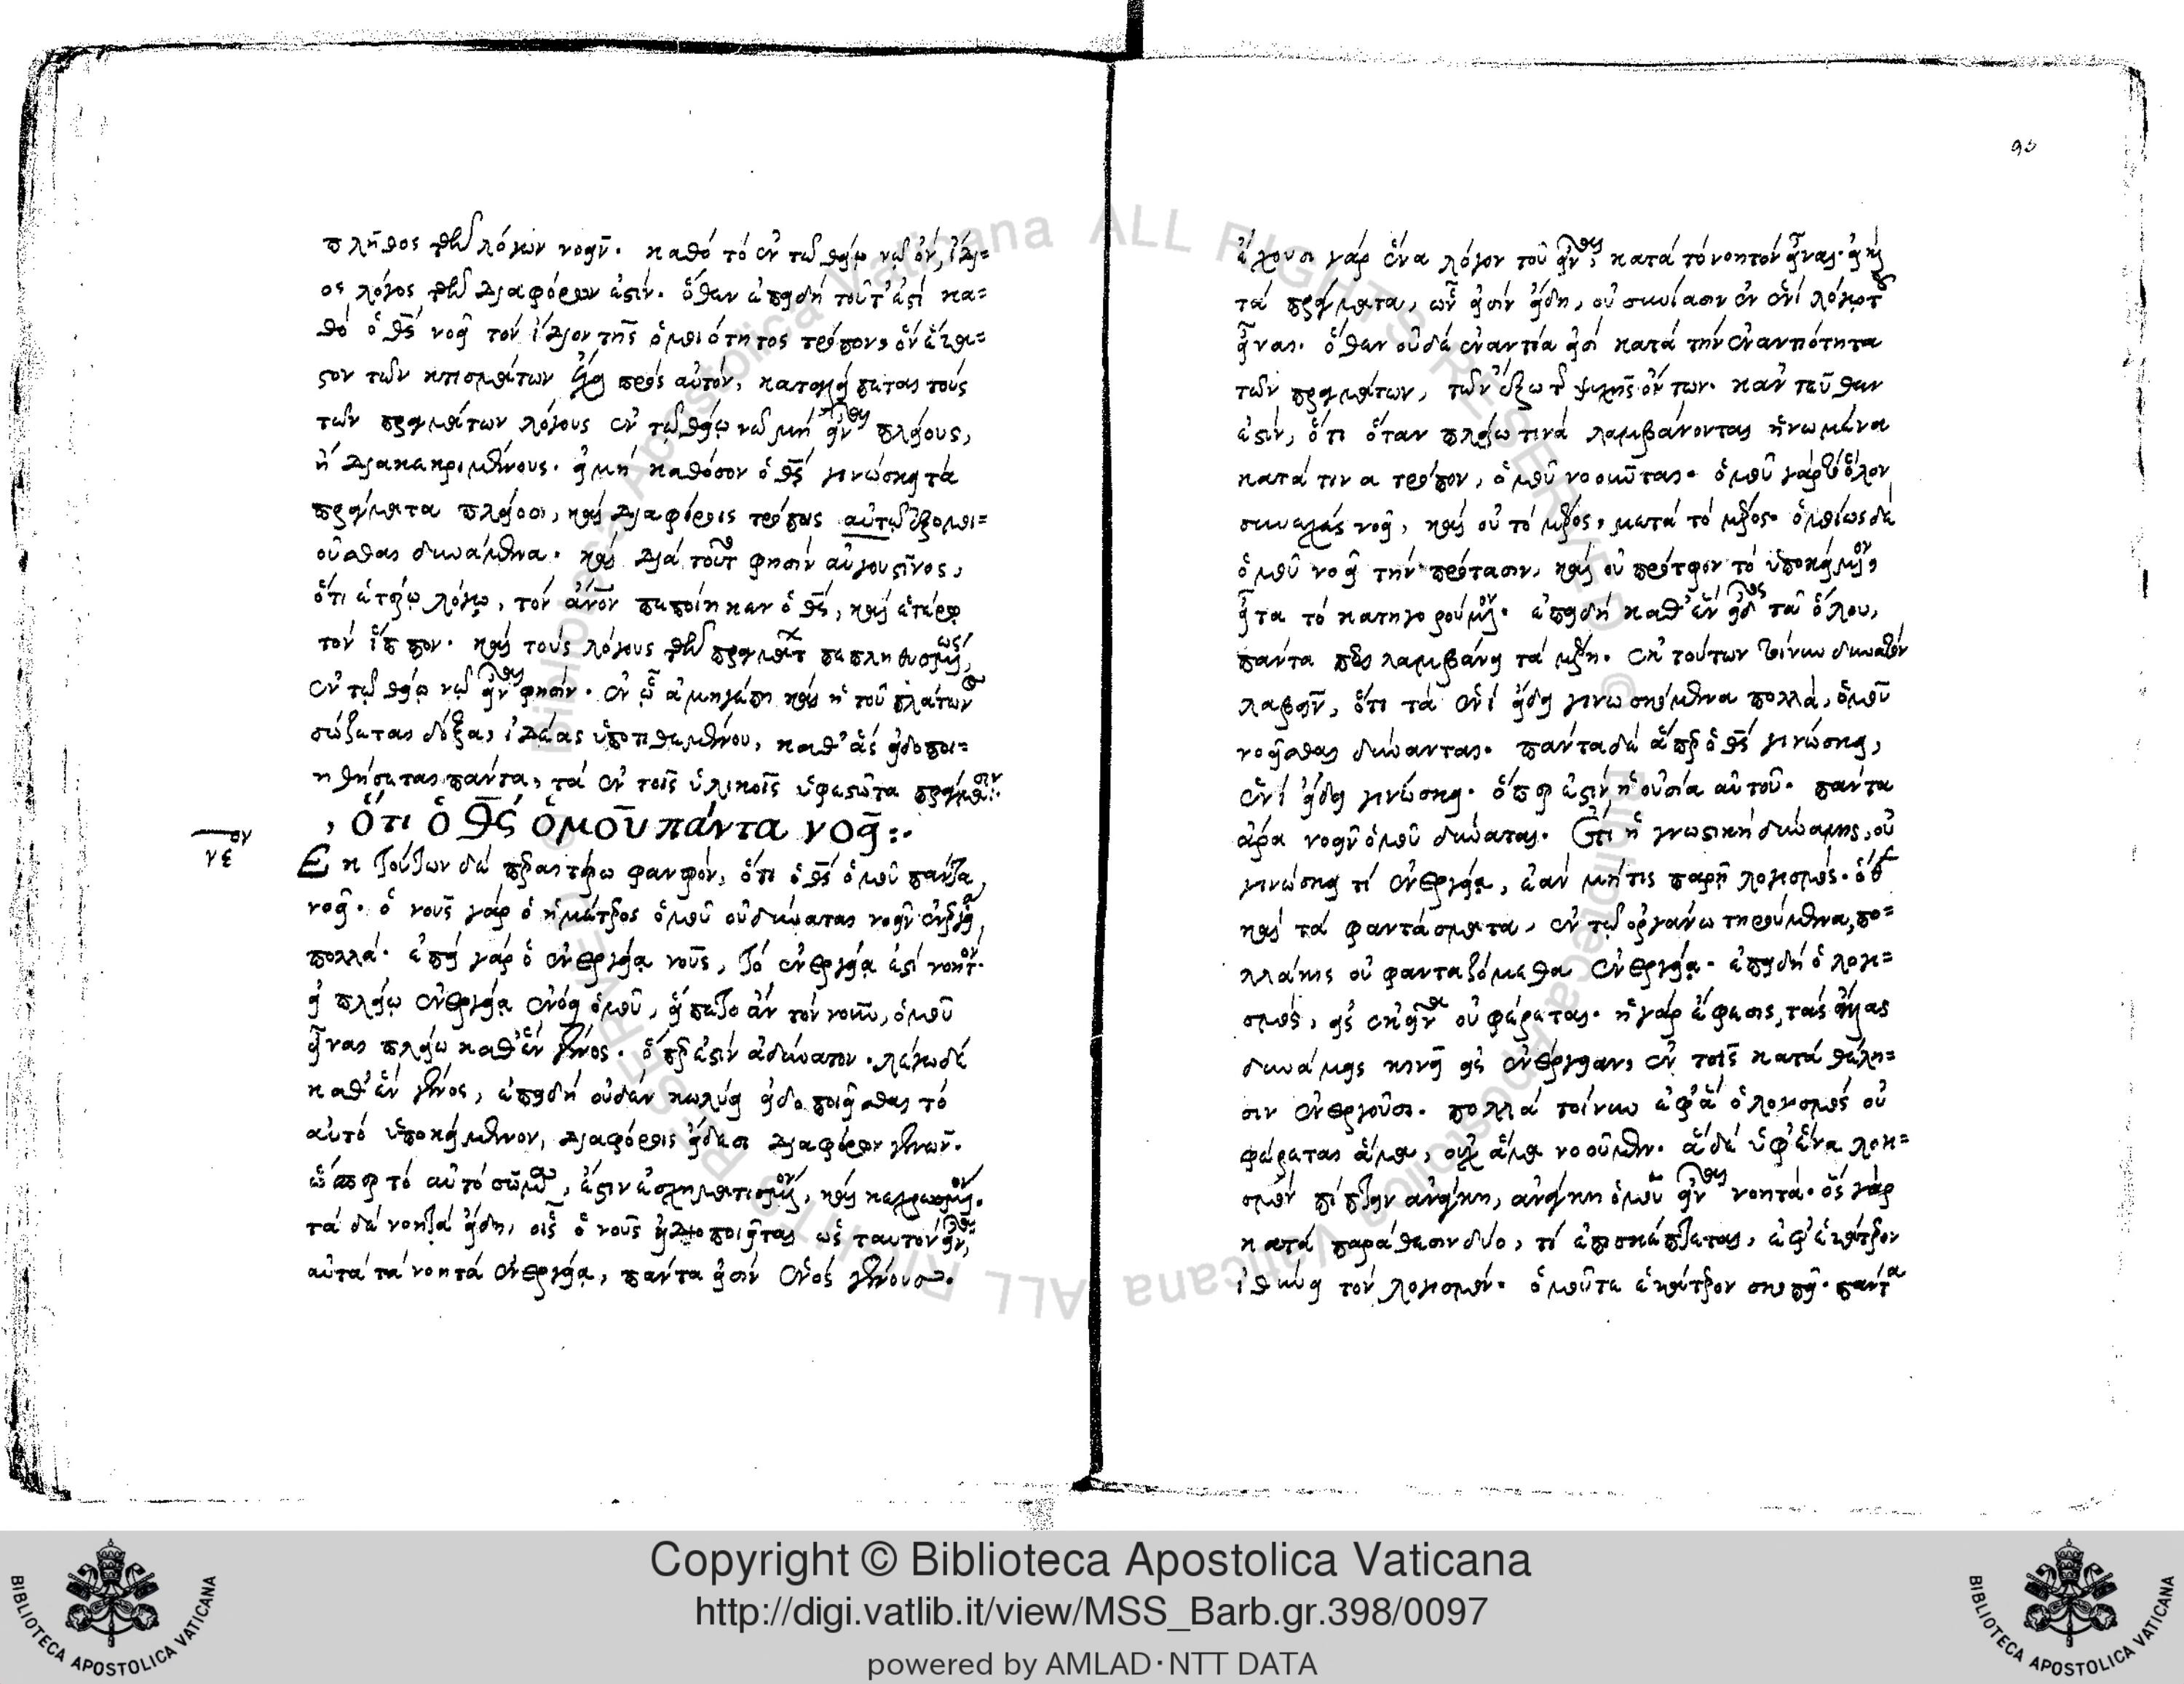 πλῆθος τῶν λόγων νοεῖν. καθὸ τὸ ἐν τῷ θείῳ νῷ ὄν, ἴδι=
ος λόγος τῶν διαφόρων ἐστίν. ὅθεν ἐπειδὴ τοῦτ' ἐστὶ κα=
θὸ ὁ θς νοεῖ τὸν ἴδιον τῆς ὁμοιότητος τρόπον, ὃν ἕκα=
στον τῶν κτισμάτων ἔχει πρὸς αὐτόν, καταλείπεται τοὺς
τῶν πραγμάτων λόγους ἐν τῷ θείῳ νῷ μὴ εἶναι πλείους,
ἢ διακεκριμένους. εἰ μὴ καθόσον ὁ θς γινώσκει τὰ
πράγματα πλείοσι, καὶ διαφόροις τρόποις αὐτῷ ἐξομοι=
οῦσθαι δυνάμενα. καὶ διὰ τοῦτο φησὶν αὐγουστῖνος,
ὅτι ἑτέρῳ λόγῳ, τὸν ἄνον πεποίηκεν ὁ θς, καὶ ἑτέρῳ
τὸν ἵππον. καὶ τοὺς λόγους τῶν πραγμάτων πεπληθυσμένως
ἐν τῷ θείῳ νῷ εἶναι φησίν. ἐν ᾧ ἀμηγέπη καὶ ἡ τοῦ πλάτωνος
σώζεται δόξα, ἰδέας ὑποτιθεμένου, καθ' ἃς εἰδοποι=
ηθήσεται πάντα, τὰ ἐν τοῖς ὑλικοῖς ὑφεστῶτα πράγμασιν:
Ὅτι ὁ θς ὁμοῦ πάντα νοεῖ:.
νε ον
Εκ τούτων δὲ περαιτέρω φανερόν, ὅτι ὁ θς ὁμοῦ πάντα
νοεῖ. ὁ νοῦς γὰρ ὁ ἡμέτερος ὁμοῦ οὐ δύναται νοεῖν ἐνεργείᾳ
πολλά. ἐπεὶ γὰρ ὁ ἐνεργείᾳ νοῦς, τὸ ἐνεργείᾳ ἐστὶ νοητόν.
εἰ πλείω ἐνεργείᾳ ἐνόει ὁμοῦ, εἵπετο ἂν τὸν νοῦν, ὁμοῦ
εἶναι πλείω καθ' ἓν γένος. ὅπερ ἐστὶν ἀδύνατον. λέγω δὲ
καθ' ἓν γένος, ἐπειδὴ οὐδὲν κωλύει εἰδοποιεῖσθαι τὸ
αὐτὸ ὑποκείμενον, διαφόροις εἴδεσι διαφόρων γενῶν.
ὥσπερ τὸ αὐτὸ σῶμα, ἐστὶν ἐσχηματισμένον, καὶ κεχρωσμένον.
τὰ δὲ νοητὰ εἴδη, οἷς ὁ νοῦς εἰδοποιεῖται ὡς ταυτὸν εἶναι,
αὐτὰ τὰ νοητὰ ἐνεργείᾳ, πάντα εἰσὶν ἑνὸς γένους.
ἔχουσι γὰρ ἕνα λόγον τοῦ εἶναι, κατὰ τὸ νοητὸν εἶναι. εἰ καὶ
τὰ πράγματα, ὧν εἰσὶν εἴδη, οὐ συνίασιν ἐν ἑνὶ λόγῳ τοῦ
εἶναι. ὅθεν οὐδὲ ἐναντία εἰσὶ κατὰ τὴν ἐναντιότητα
τῶν πραγμάτων, τῶν ἔξω τῆς ψυχῆς ὄντων. κἀντεῦθεν
ἐστίν, ὅτι ὅταν πλείω τινὰ λαμβάνονται ἡνωμένα
κατά τινα τρόπον, ὁμοῦ νοοῦνται. ὁμοῦ γὰρ τὸ ὅλον
συνεχὲς νοεῖ, καὶ οὐ τὸ μέρος, μετὰ τὸ μέρος. ὁμοίως δὲ
ὁμοῦ νοεῖ τὴν πρότασιν, καὶ οὐ πρότερον τὸ ὑποκείμενον
εἶτα τὸ κατηγορούμενον. ἐπειδὴ καθ' ἓν εἶδος τοῦ ὅλου,
πάντα λαμβάνει τὰ μέρη. ἐκ τούτων τοίνυν δυνατὸν
λαβεῖν, ὅτι τὰ ἑνὶ εἴδει γινωσκόμενα πολλά, ὁμοῦ
νοεῖσθαι δύνανται. πάντα δὲ ἅπερ ὁ θς γινώσκει,
ἑνὶ εἴδει γινώσκει. ὅπερ ἐστὶν ἡ οὐσία αὐτοῦ. πάντα
ἄρα νοεῖν ὁμοῦ δύναται. Ἔτι ἡ γνωστικὴ δύναμις, οὐ
γινώσκει τὶ ἐνεργείᾳ, ἐὰν μή τις παρῇ λογισμός. ὅθεν
καὶ τὰ φαντάσματα, ἐν τῷ ὀργάνῳ τηρούμενα, πο=
λλάκις οὐ φανταζόμεθα ἐνεργείᾳ. ἐπειδὴ ὁ λογι=
σμός, εἰς ἐκεῖνα οὐ φέρεται. ἡ γὰρ ἔφεσις, τὰς ἄλλας
δυνάμεις κινεῖ εἰς ἐνέργειαν, ἐν τοῖς κατὰ θέλη=
σιν ἐνεργοῦσι. πολλὰ τοίνυν ἐφ' ἃ ὁ λογισμὸς οὐ
φέρεται ἅμα, οὐχ ἅμα νοοῦμεν. ἃ δὲ ὑφ' ἕνα λογι=
σμὸν πίπτειν ἀνάγκη, ἀνάγκη ὁμοῦ εἶναι νοητά. ὃς γὰρ
κατὰ παράθεσιν δύο, τὶ ἐπισκέπτεται, ἐφ' ἑκάτερον
ἰθύνει τὸν λογισμόν. ὁμοῦ τε ἑκάτερον σκοπεῖ. πάντα